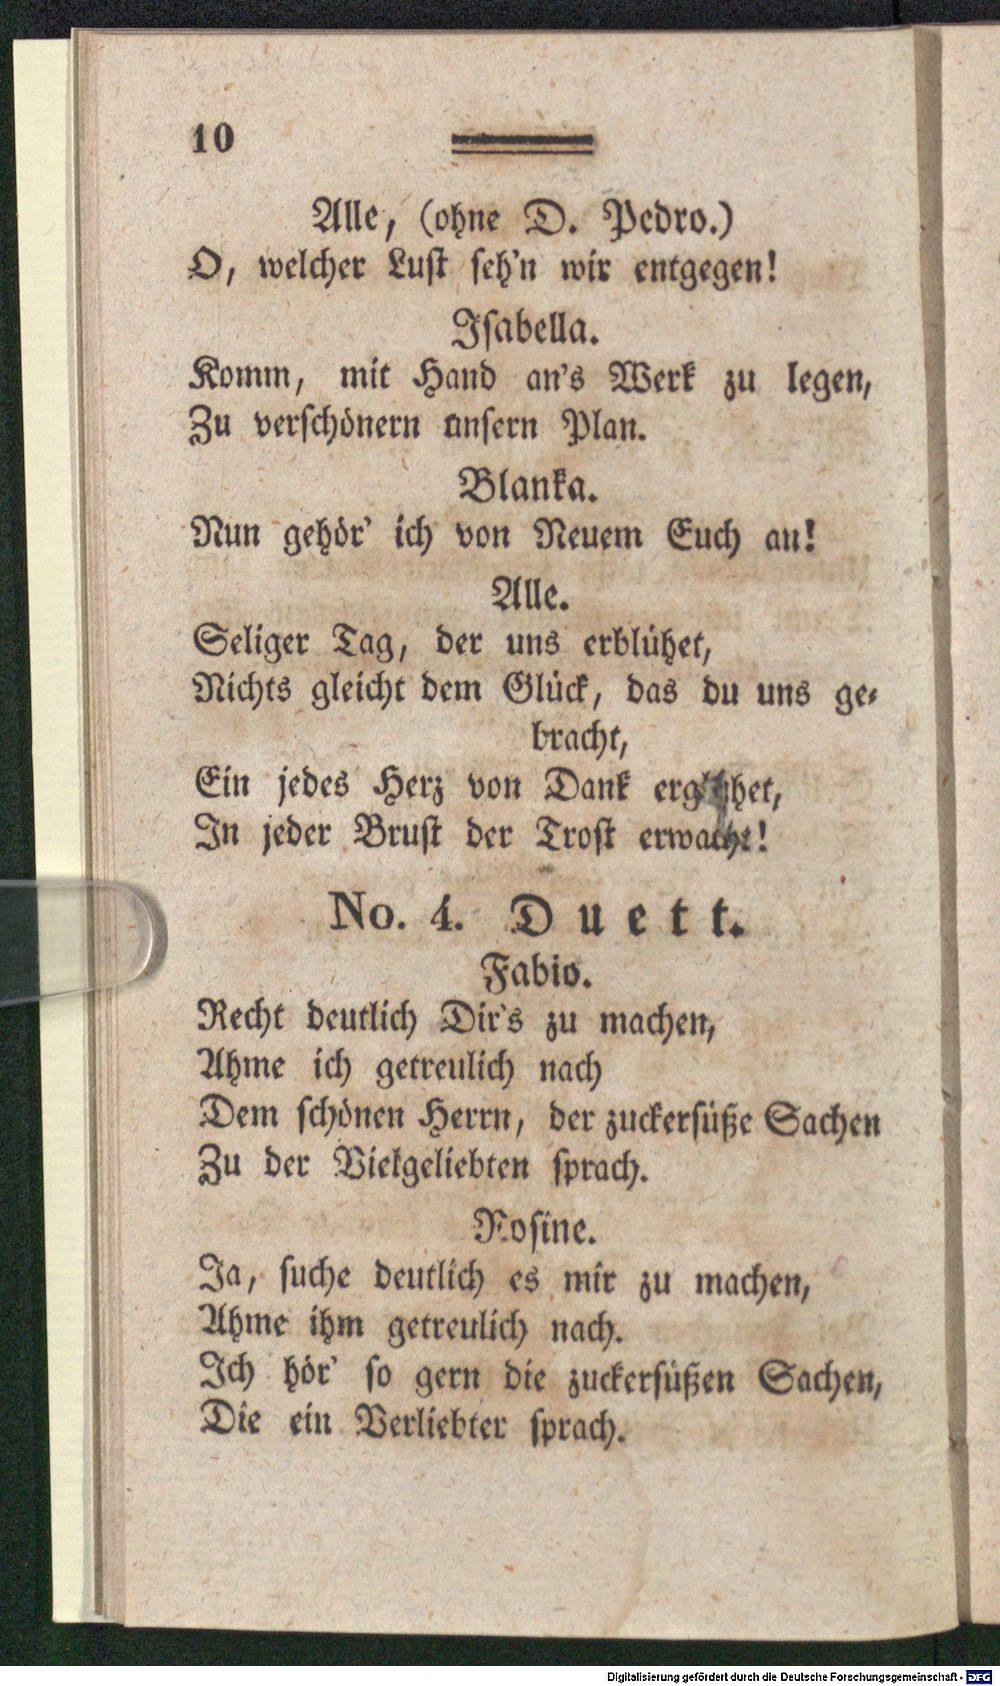 10
Alle, (ohne D. Pedro.)
O, welcher Lust seh'n wir entgegen!
Isabella.
Komm, mit Hand an's Werk zu legen,
Zu verschönern unsern Plan.
Blanka.
Nun gehör' ich von Neuem Euch an!
Alle.
Seliger Tag, der uns erblühet,
Nichts gleicht dem Glück, das du uns ge-
bracht,
Ein jedes Herz von Dank erglühet,
In jeder Brust der Trost erwacht!
No. 4. Duett.
Fabio.
Recht deutlich Dir's zu machen,
Ahme ich getreulich nach
Dem schönen Herrn, der zuckersüße Sachen
Zu der Vielgeliebten sprach.
Rosine.
Ja, suche deutlich es mir zu machen,
Ahme ihm getreulich nach.
Ich hör' so gern die zuckersüßen Sachen,
Die ein Verliebter sprach.
Digitalisierung gefördert durch die Deutsche Forschungsgemeinschaft - DFG